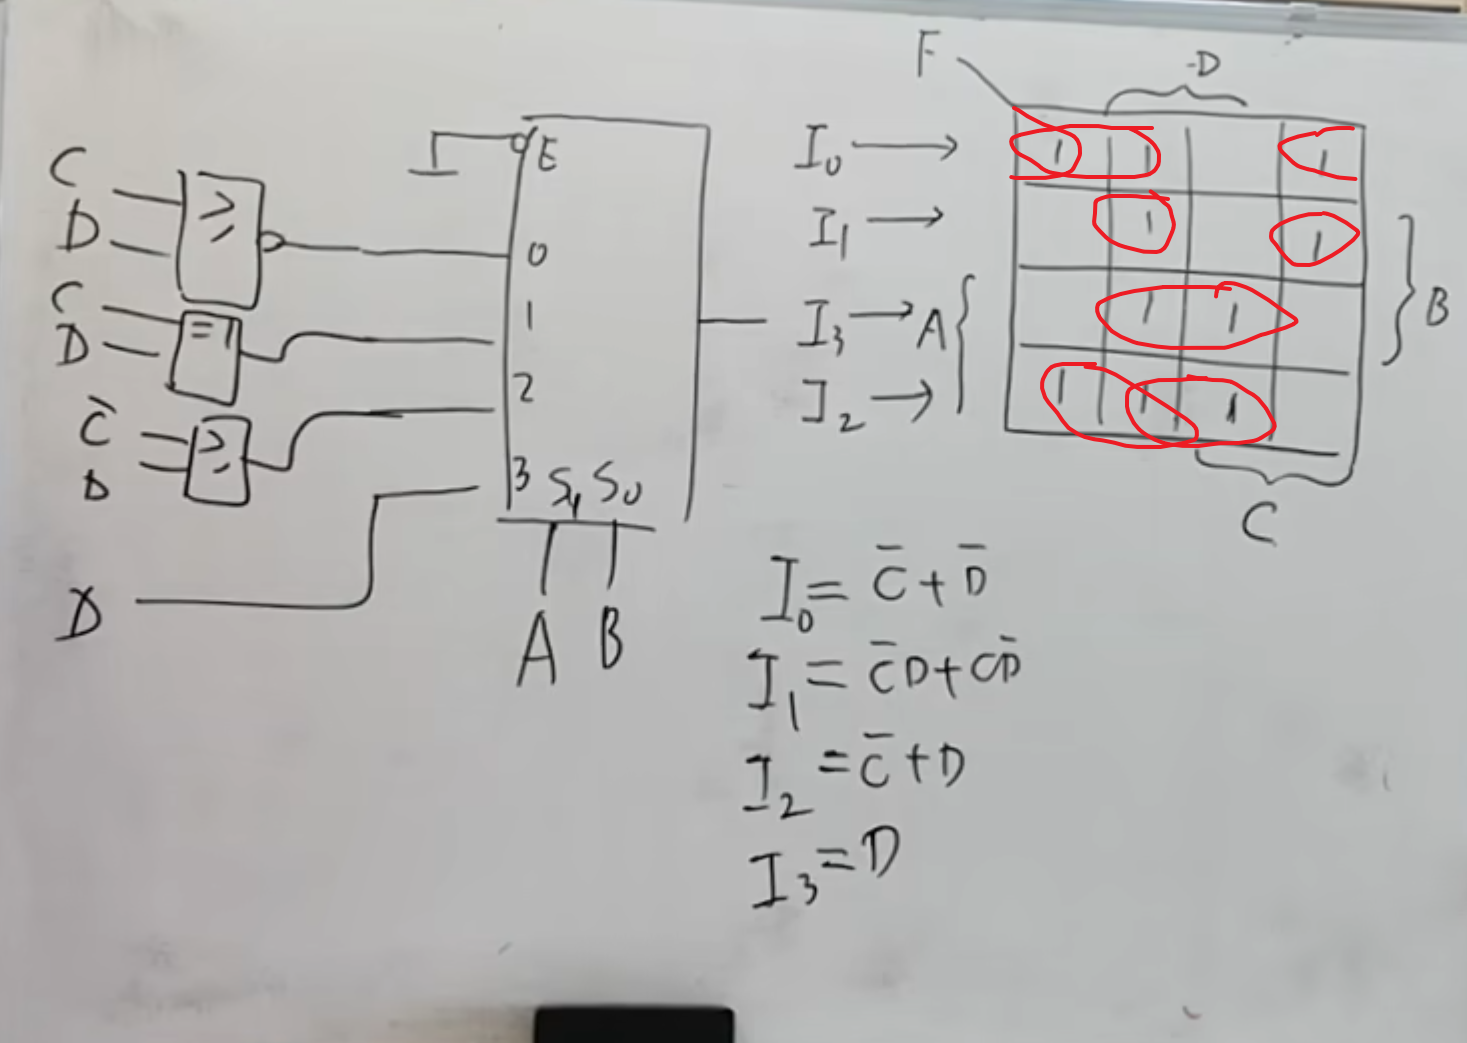 F
D
C
D
≥
E
0
C
D
=1
1
C̄
D
≥
2
3 S₁ S₀
D
A B
I₀ →
I₁ →
I₃ → A
I₂ →
B
C
1 1 1
1 1
1 1
1 1 1
I₀ = C̄ + D̄
I₁ = C̄D + CD̄
I₂ = C̄ + D
I₃ = D